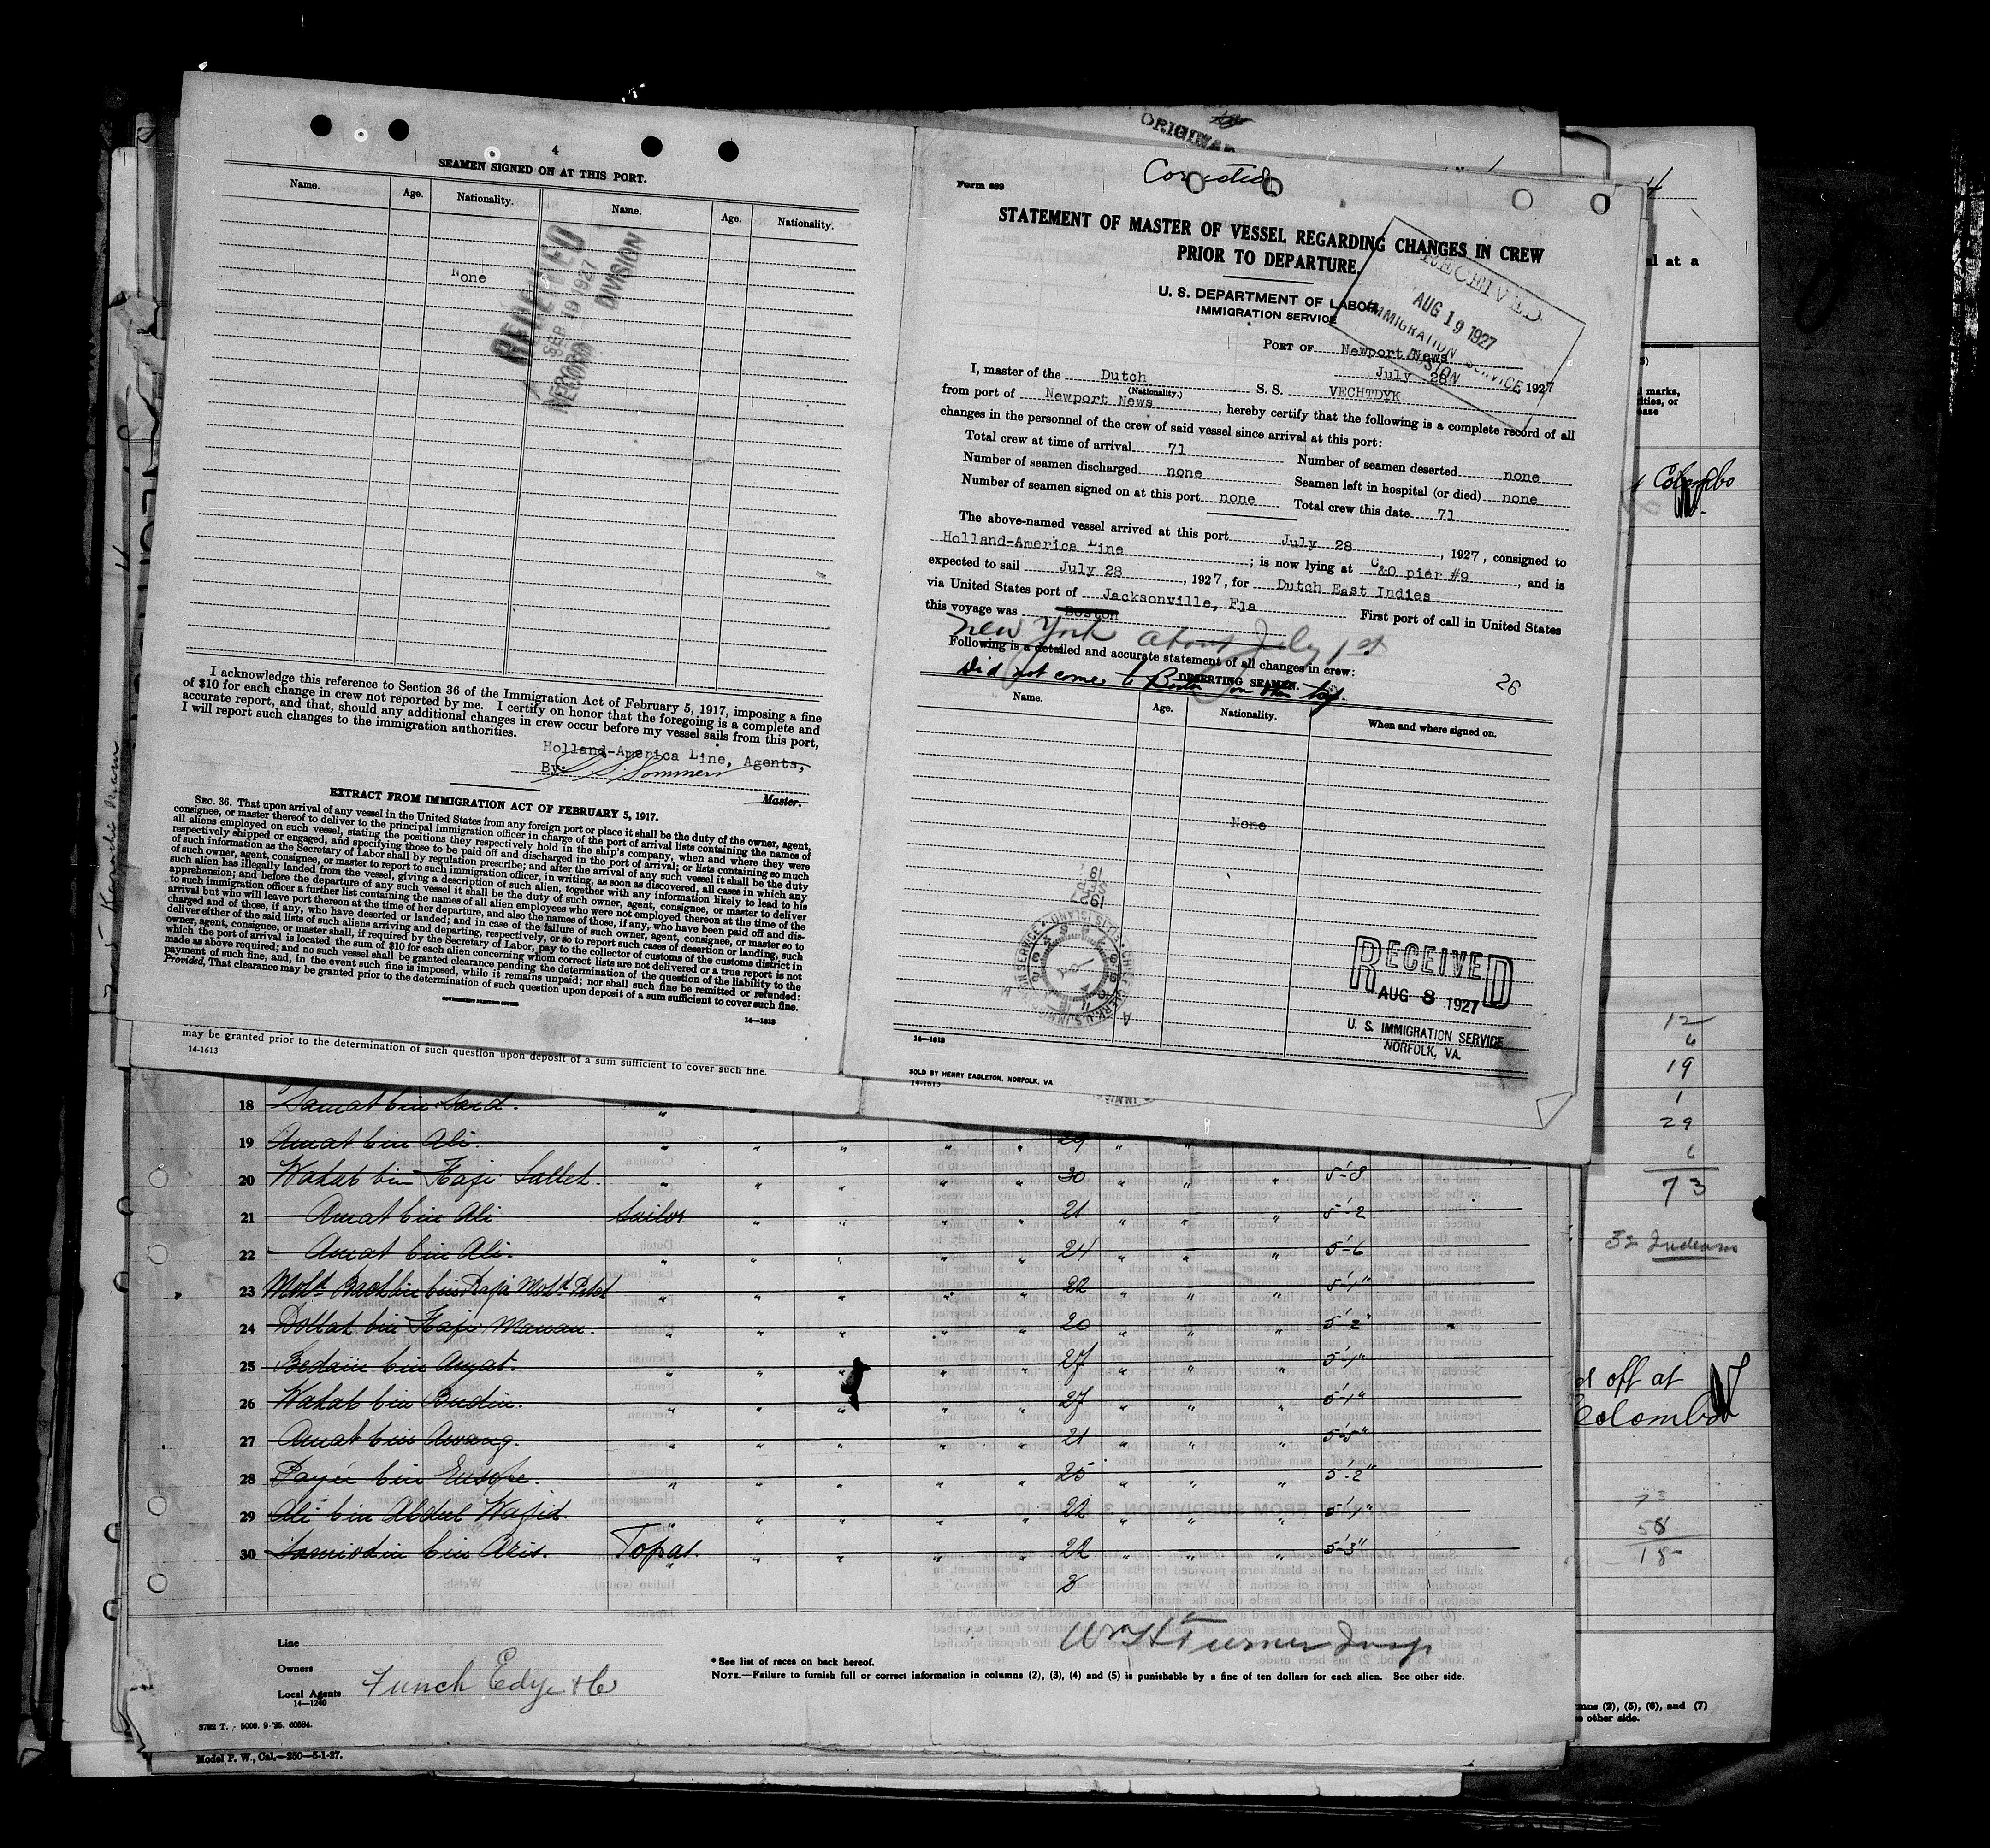 4
SEAMEN SIGNED ON AT THIS PORT.
Name. Age. Nationality. Name. Age. Nationality.
None
REVIEWED
SEP 19 1927
RECORD DIVISION
I acknowledge this reference to Section 36 of the Immigration Act of February 5, 1917, imposing a fine
of $10 for each change in crew not reported by me. I certify on honor that the foregoing is a complete and
accurate report, and that, should any additional changes in crew occur before my vessel sails from this port,
I will report such changes to the immigration authorities.
Holland-America Line, Agents,
By: Sommers
Master.
EXTRACT FROM IMMIGRATION ACT OF FEBRUARY 5, 1917.
SEC. 36. That upon arrival of any vessel in the United States from any foreign port or place it shall be the duty of the owner, agent,
consignee, or master thereof to deliver to the principal immigration officer in charge of the port of arrival lists containing the names of
all aliens employed on such vessel, stating the positions they respectively hold in the ship's company, when and where they were
respectively shipped or engaged, and specifying those to be paid off and discharged in the port of arrival; or lists containing so much
of such information as the Secretary of Labor shall by regulation prescribe; and after the arrival of any such vessel it shall be the duty
of such owner, agent, consignee, or master to report to such immigration officer, in writing, as soon as discovered, all cases in which any
such alien has illegally landed from the vessel, giving a description of such alien, together with any information likely to lead to his
apprehension; and before the departure of any such vessel it shall be the duty of such owner, agent, consignee, or master to deliver
to such immigration officer a further list containing the names of all alien employees who were not employed thereon at the time of the
arrival but who will leave port thereon at the time of her departure, and also the names of those, if any, who have been paid off and dis-
charged and of those, if any, who have deserted or landed; and in case of the failure of such owner, agent, consignee, or master so to
deliver either of the said lists of such aliens arriving and departing, respectively, or so to report such cases of desertion or landing, such
owner, agent, consignee, or master shall, if required by the Secretary of Labor, pay to the collector of customs of the customs district in
which the port of arrival is located the sum of $10 for each alien concerning whom correct lists are not delivered or a true report is not
made as above required; and no such vessel shall be granted clearance pending the determination of the question of the liability to the
payment of such fine, and, in the event such fine is imposed, while it remains unpaid; nor shall such fine be remitted or refunded:
Provided, That clearance may be granted prior to the determination of such question upon deposit of a sum sufficient to cover such fine.
GOVERNMENT PRINTING OFFICE
14—1613
may be granted prior to the determination of such question upon deposit of a sum sufficient to cover such fine.
14-1613
ORIGINAL
Corrected
Form 689
STATEMENT OF MASTER OF VESSEL REGARDING CHANGES IN CREW
PRIOR TO DEPARTURE.
U. S. DEPARTMENT OF LABOR
IMMIGRATION SERVICE
RECEIVED
AUG 19 1927
IMMIGRATION SERVICE
BOSTON
PORT OF Newport News
July 28, 1927
I, master of the Dutch S. S. VECHTDYK
(Nationality.)
from port of Newport News, hereby certify that the following is a complete record of all
changes in the personnel of the crew of said vessel since arrival at this port:
Total crew at time of arrival 71 Number of seamen deserted none
Number of seamen discharged none Seamen left in hospital (or died) none
Number of seamen signed on at this port none Total crew this date 71
The above-named vessel arrived at this port July 28, 1927, consigned to
Holland-America Line; is now lying at C&O pier #9, and is
expected to sail July 28, 1927, for Dutch East Indies
via United States port of Jacksonville, Fla First port of call in United States
this voyage was Boston
New York about July 1st
Following is a detailed and accurate statement of all changes in crew:
26
Did not come to Boston on this trip.
DESERTING SEAMEN.
Name. Age. Nationality. When and where signed on.
None
1927
RECEIVED
AUG 8 1927
U. S. IMMIGRATION SERVICE
NORFOLK, VA.
14—1613
SOLD BY HENRY EAGLETON, NORFOLK, VA.
14-1613
al at a
marks,
ities, or
ease
Colombo
12
6
19
1
29
6
73
32 Indians
d off at
Colombo
73
58
15
18 Samat bin Said. "
19 Amat bin Ali. " " " " 29 " " "
20 Wahat bin Haji Salleh. " " " " 30 " " " 5'-8
21 Amat bin Ali Sailor " " " 21 " " " 5'-2
22 Amat bin Ali. " " " " 24 " " " 5'-6
23 Mohd. bin Haji Mohd " " " " 22 " " " 5'-1"
24 Dollah bin Haji Manan. " " " " 20 " " " 5'-2"
25 Bedain bin Amat. " " " " 27 " " " 5'-1"
26 Wahab bin Budin. " " " " 27 " " " 5'-1"
27 Amat bin Awang. " " " " 21 " " " 5'-5"
28 Payie bin Eusope. " " " " 25 " " " 5'-2"
29 Ali bin Abdul Wajid. " " " " 22 " " " 5'-1"
30 Samiodin bin Aris. Topas. " " " 22 " " " 5'-3"
3
Line
Owners
Local Agents Funch Edye & Co
14—1240
Wm H Turner Insp
* See list of races on back hereof.
NOTE.—Failure to furnish full or correct information in columns (2), (3), (4) and (5) is punishable by a fine of ten dollars for each alien. See other side.
3782 T. 5000. 9-'25. 60584.
Model P. W., Cal.—250—5-1-27.
mns (2), (5), (6), and (7)
e other side.